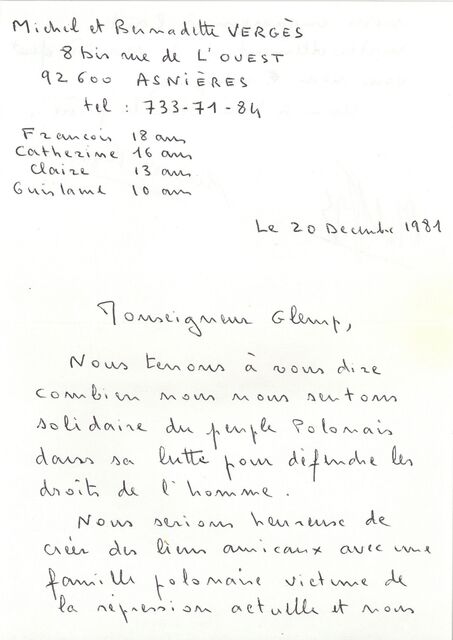 Michel et Bernadette VERGÈS
8 bis rue de L'OUEST
92600 ASNIÈRES
tel : 733-71-84
François 18 ans
Catherine 16 ans
Claire 13 ans
Guislaine 10 ans
Le 20 Decembre 1981
Monseigneur Glemp,
Nous tenons à vous dire
combien nous nous sentons
solidaire du peuple Polonais
dans sa lutte pour défendre les
droits de l'homme.
Nous serions heureuse de
créer des liens amicaux avec une
famille polonaise victime de
la répression actuelle et nous